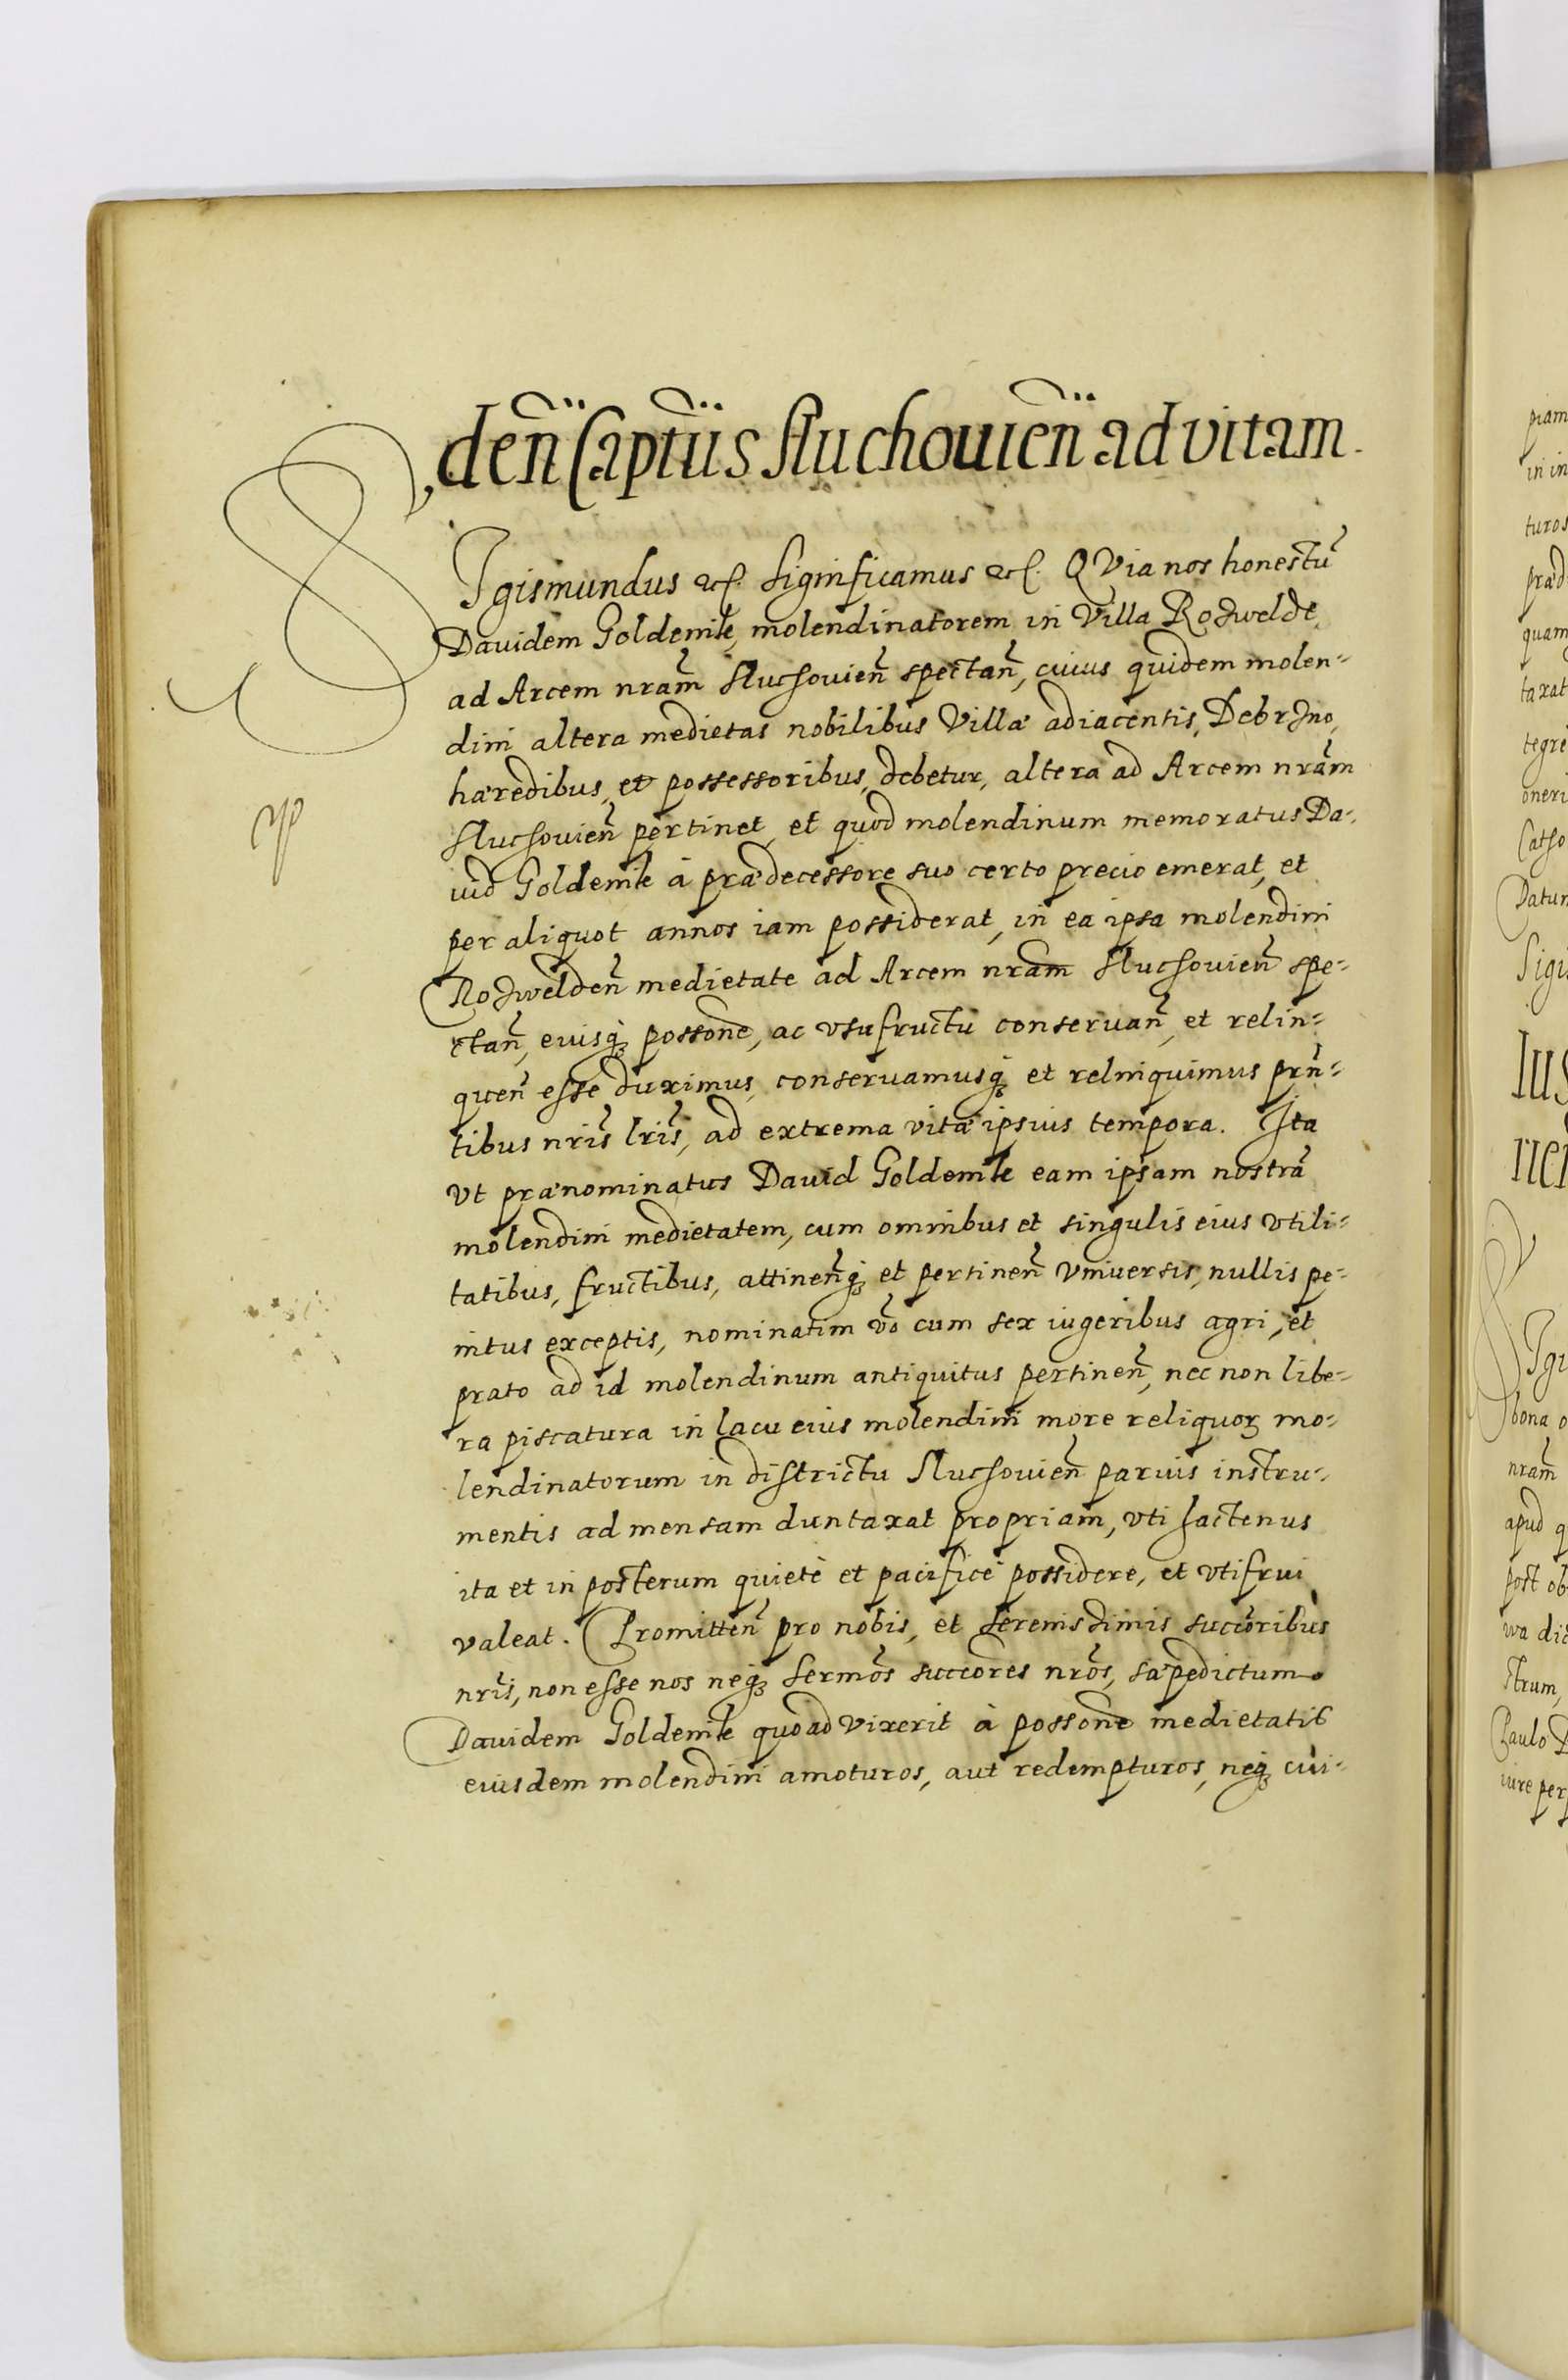 den̄ Captiis Sluchouien̄ ad vitam.
SIgismundus etc. Significamus etc. QVia nos honestū
Dauidem Goldemle, molendinatorem in Villa Rozwelde,
ad Arcem nrām Slucħouien̄ spectan̄, cuius quidem molen-
dini altera medietas nobilibus Villæ adiacentis, Debrzno,
hæredibus, et possessoribus, debetur, altera ad Arcem nrām
Slucħouien̄ pertinet, et quod molendinum memoratus Da-
uid Goldemle à prædecessore suo certo precio emerat, et
per aliquot annos iam possiderat, in ea ipsa molendini
Rozwelden̄ medietate ad Arcem nrām Slucħouien̄ spe-
ctan̄, eiusq; possone, ac vsufructu conseruan̄, et relin-
quen̄ esse duximus, conseruamusq; et relinquimus prn̄-
tibus nrīs lrīs, ad extrema vitæ ipsius tempora. Ita
vt prænominatus Dauid Goldemle eam ipsam nostrā
molendini medietatem, cum omnibus et singulis eius vtili-
tatibus, fructibus, attinen̄q; et pertinen̄ vniuersis, nullis pe-
nitus exceptis, nominatim vō cum sex iugeribus agri, et
prato ad id molendinum antiquitus pertinen̄, nec non libe-
ra piscatura in lacu eius molendini more reliquoꝝ mo-
lendinatorum in districtu Slucħouien̄ paruis instru-
mentis ad mensam duntaxat propriam, vti hactenus
ita et in posterum quietè et pacificè possidere, et vtifrui
valeat. Promitten̄ pro nobis, et Serenissimis succōribus
nrīs, non esse nos neq; Sermōs succōres nrōs, sæpedictum
Dauidem Goldemle quoad vixerit à possone medietatis
eiusdem molendini amoturos, aut redempturos, neq; cui-
piam
in in
turos
præd
quam
taxat
tegre
oneri
Catho
Datum
Sigis
Ius
nen
SIgi
bona o
nrām
apud q
post ob
wa dic
strum,
Paulo D
iure per